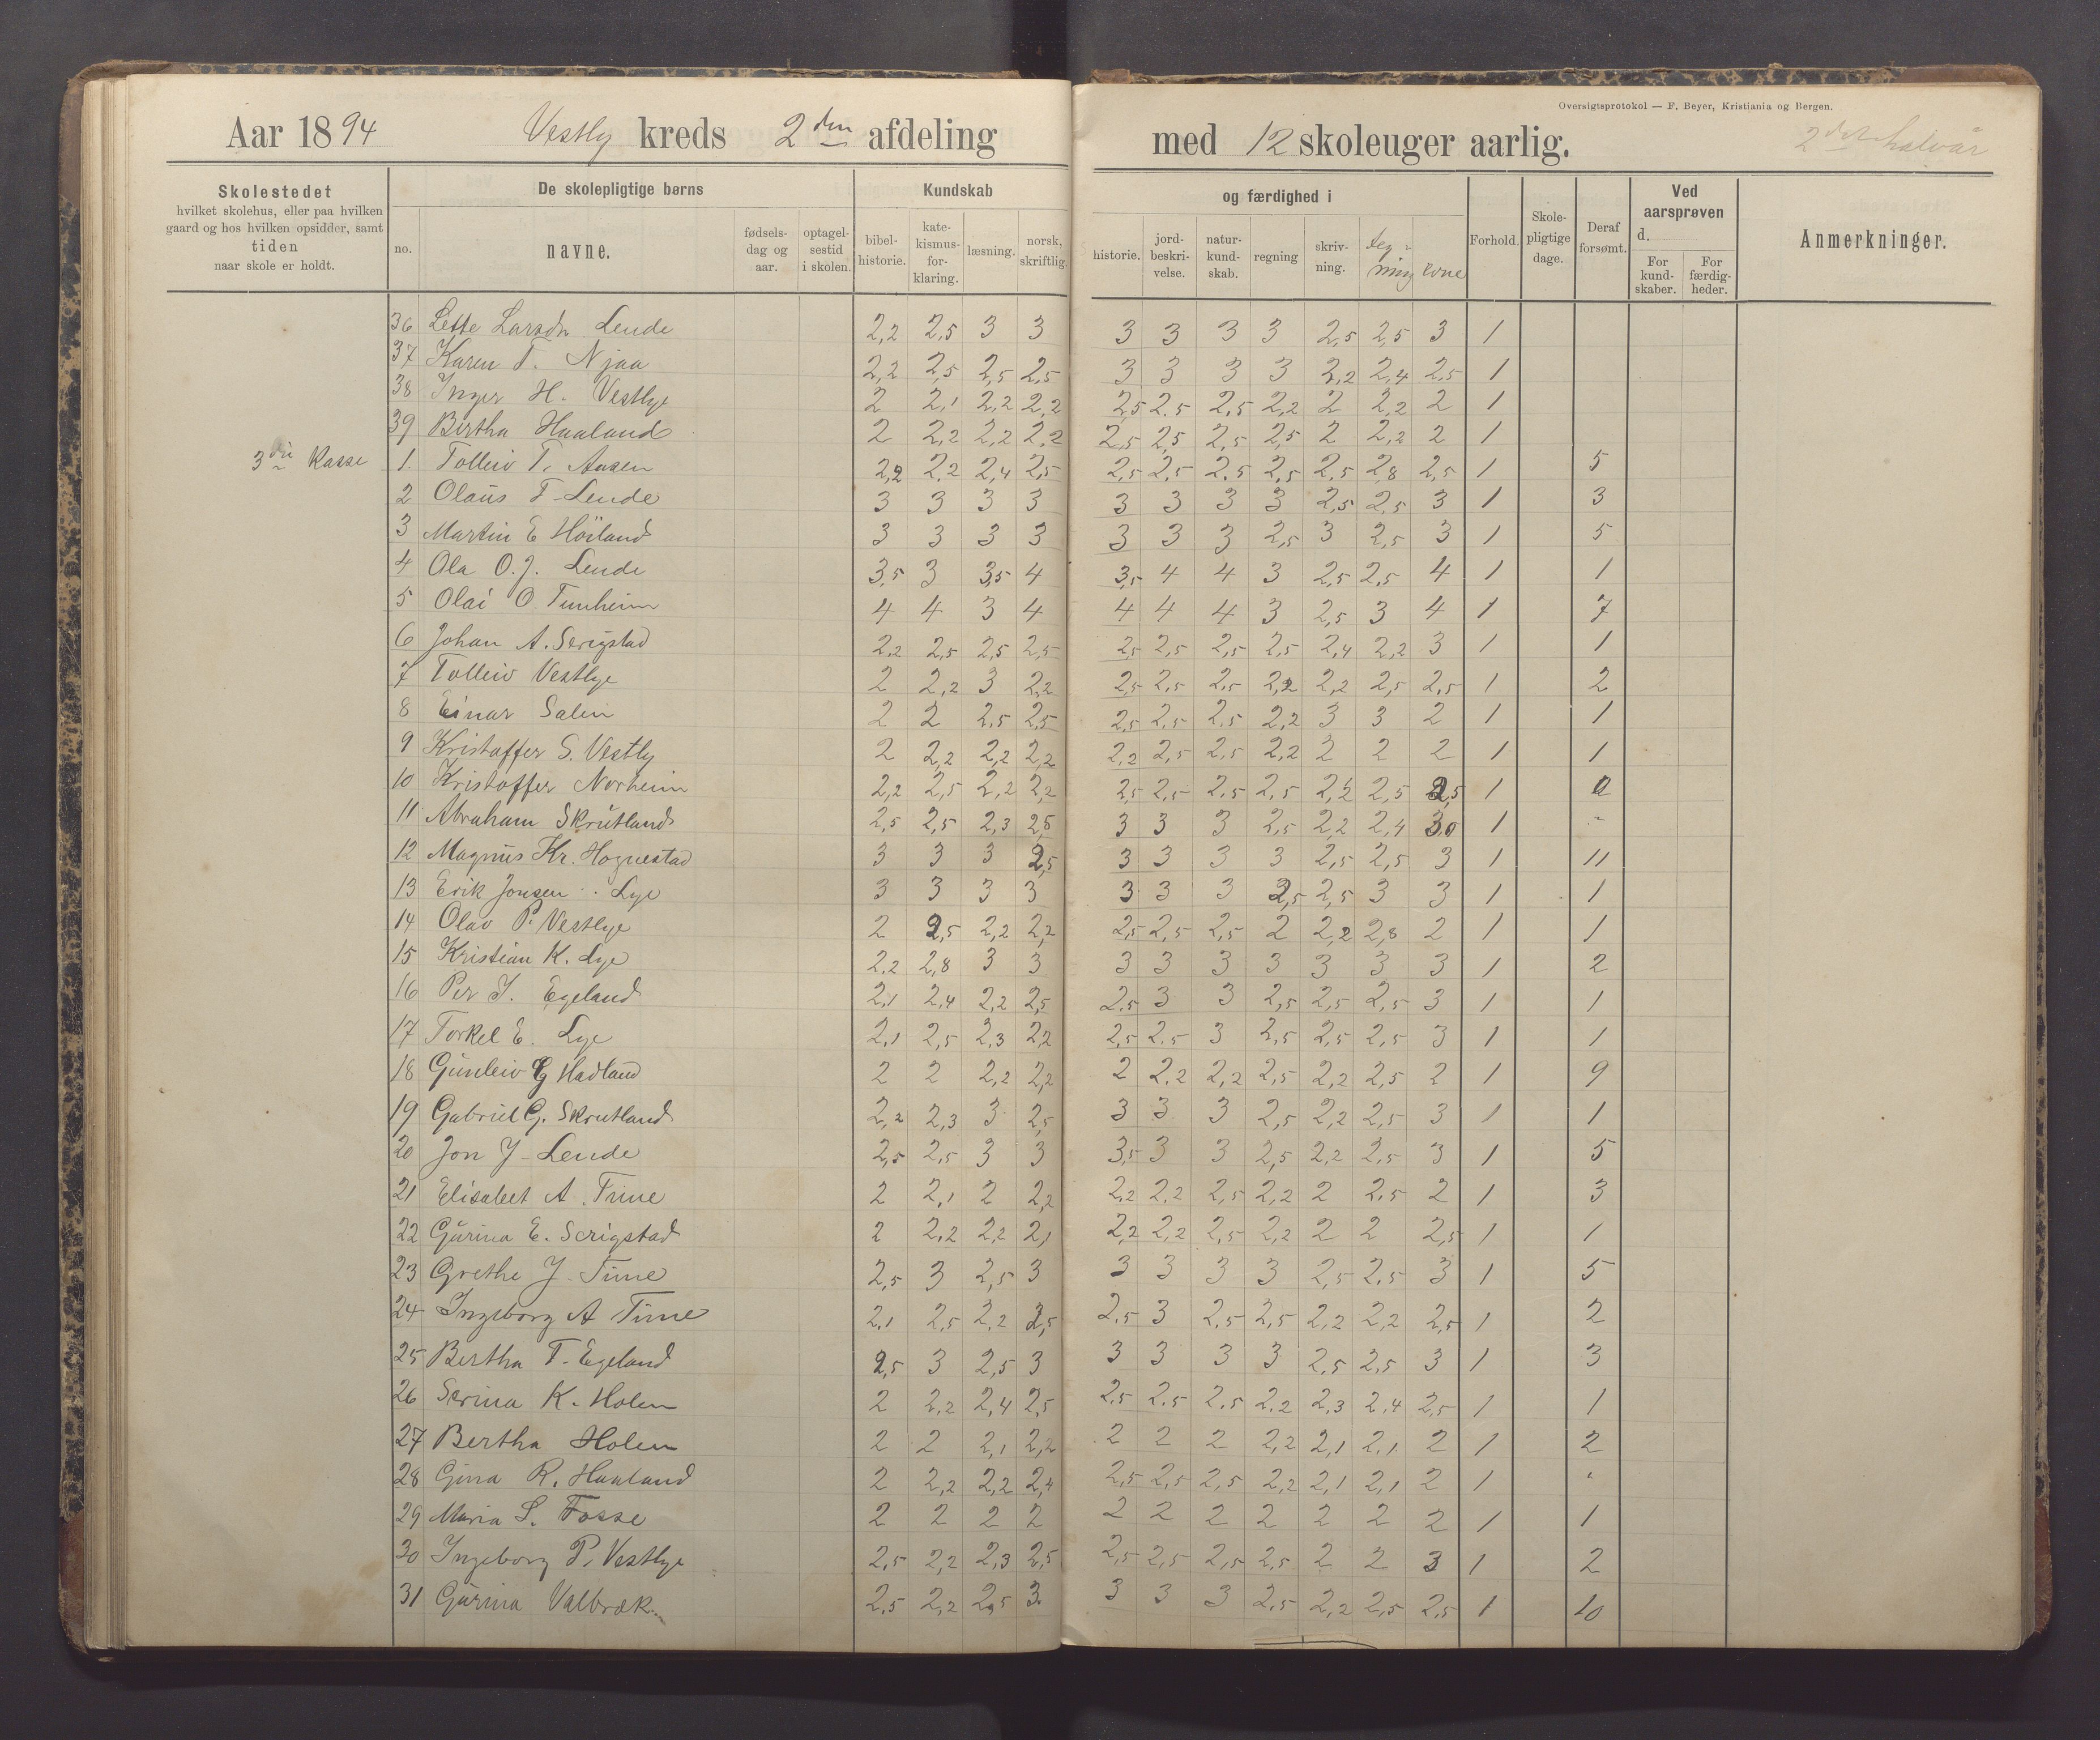 Oversigtsprotokol — F. Beyer, Kristiania og Bergen.
Aar 1894 Vestly kreds 2den afdeling med 12 skoleuger aarlig. 2det halvår
Skolestedet
hvilket skolehus, eller paa hvilken
gaard og hos hvilken opsidder, samt
tiden
naar skole er holdt.
De skolepligtige børns
no. navne. fødsels-dag og aar. optagel-sestid i skolen.
Kundskab og færdighed i
bibel-historie. kate-kismus-for-klaring. læsning. norsk, skriftlig. historie. jord-beskri-velse. natur-kund-skab. regning skriv-ning. teg-ning evne
Forhold. Skole-pligtige dage. Deraf forsømt.
Ved aarsprøven d.
For kund-skaber. For færdig-heder.
Anmerkninger.
36 Lette Larsdn Lende 2,2 2,5 3 3 3 3 3 3 2,5 2,5 3 1
37 Karen T. Njaa 2,2 2,5 2,5 2,5 3 3 3 3 2,2 2,4 2,5 1
38 Inger H. Vestlye 2 2,1 2,2 2,2 2,5 2,5 2,5 2,2 2 2,2 2 1
39 Bertha Haaland 2 2,2 2,2 2,2 2,5 2,5 2,5 2,5 2 2,2 2 1
3die Kasse 1 Tolleiv T. Aasen 2,2 2,2 2,4 2,5 2,5 2,5 2,5 2,5 2,5 2,8 2,5 1 5
2 Olaus T. Lende 3 3 3 3 3 3 3 3 2,5 2,5 3 1 3
3 Martin E Höiland 3 3 3 3 3 3 3 2,5 3 2,5 3 1 5
4 Ola O.J. Lende 3,5 3 3,5 4 3,5 4 4 3 2,5 2,5 4 1 1
5 Olai O. Tunheim 4 4 3 4 4 4 4 3 2,5 3 4 1 7
6 Johan A. Serigstad 2,2 2,5 2,5 2,5 2,5 2,5 2,5 2,5 2,4 2,2 3 1 1
7 Tolleiv Vestlye 2 2,2 3 2,2 2,5 2,5 2,5 2,2 2,2 2,5 2,5 1 2
8 Einar Salen 2 2 2,5 2,5 2,5 2,5 2,5 2,2 3 3 2 1 1
9 Kristoffer S. Vestly 2 2,2 2,2 2,2 2,2 2,5 2,5 2,2 2 2 2 1 1
10 Kristoffer Norheim 2,2 2,5 2,2 2,2 2,5 2,5 2,5 2,5 2,2 2,5 2,5 1 0
11 Abraham Skrutland 2,5 2,5 2,3 2,5 3 3 3 2,5 2,2 2,4 3,0 1 -
12 Magnus Kr. Hognestad 3 3 3 2,5 3 3 3 3 2,5 2,5 3 1 11
13 Erik Jonsen Lye 3 3 3 3 3 3 3 2,5 2,5 3 3 1 1
14 Olav P. Vestlye 2 2,5 2,2 2,2 2,5 2,5 2,5 2 2,2 2,8 2 1 1
15 Kristian K. Lye 2,2 2,8 3 3 3 3 3 3 3 3 3 1 2
16 Per J. Egeland 2,1 2,4 2,2 2,5 2,5 3 3 2,5 2,5 2,5 3 1 1
17 Torkel E. Lye 2,1 2,5 2,3 2,2 2,5 2,5 3 2,5 2,5 2,5 3 1 1
18 Gunleiv G Hadland 2 2 2,2 2,2 2 2,2 2,2 2,5 2,2 2,5 2 1 9
19 Gabriel G. Skrutland 2,2 2,3 3 2,5 3 3 3 2,5 2,2 2,5 3 1 1
20 Jon J. Lende 2,5 2,5 3 3 3,5 3 3 2,5 2,2 2,5 3 1 5
21 Elisabet A. Time 2 2,1 2 2,2 2,2 2,2 2,5 2,2 2 2,5 2 1 3
22 Gurina E. Serigstad 2 2,2 2,2 2,1 2,2 2,2 2,5 2,2 2 2 2,5 1 1
23 Grethe J. Time 2,5 3 2,5 3 3 3 3 3 2,5 2,5 3 1 5
24 Ingeborg A Time 2,1 2,5 2,2 2,5 2,5 3 2,5 2,5 2,2 2,2 2,5 1 2
25 Bertha T. Egeland 2,5 3 2,5 3 3 3 3 3 2,5 2,5 3 1 3
26 Serina K. Holen 2 2,2 2,4 2,5 2,5 2,5 2,5 2,2 2,3 2,4 2,5 1 1
27 Bertha Holen 2 2 2,1 2,2 2 2 2 2,2 2,1 2,1 2 1 2
28 Gina R. Haaland 2 2,2 2,2 2,4 2,5 2,5 2,5 2,2 2,1 2,1 2 1
29 Maria S. Fosse 2 2 2 2 2 2 2 2 2 2 2 1 1
30 Ingeborg P. Vestlye 2,5 2,2 2,3 2,5 2,5 2,5 2,5 2,5 2 2 3 1 2
31 Gurina Valbræk 2,5 2,2 2,5 3 3 3 3 2,5 2,2 2,5 2,5 1 10